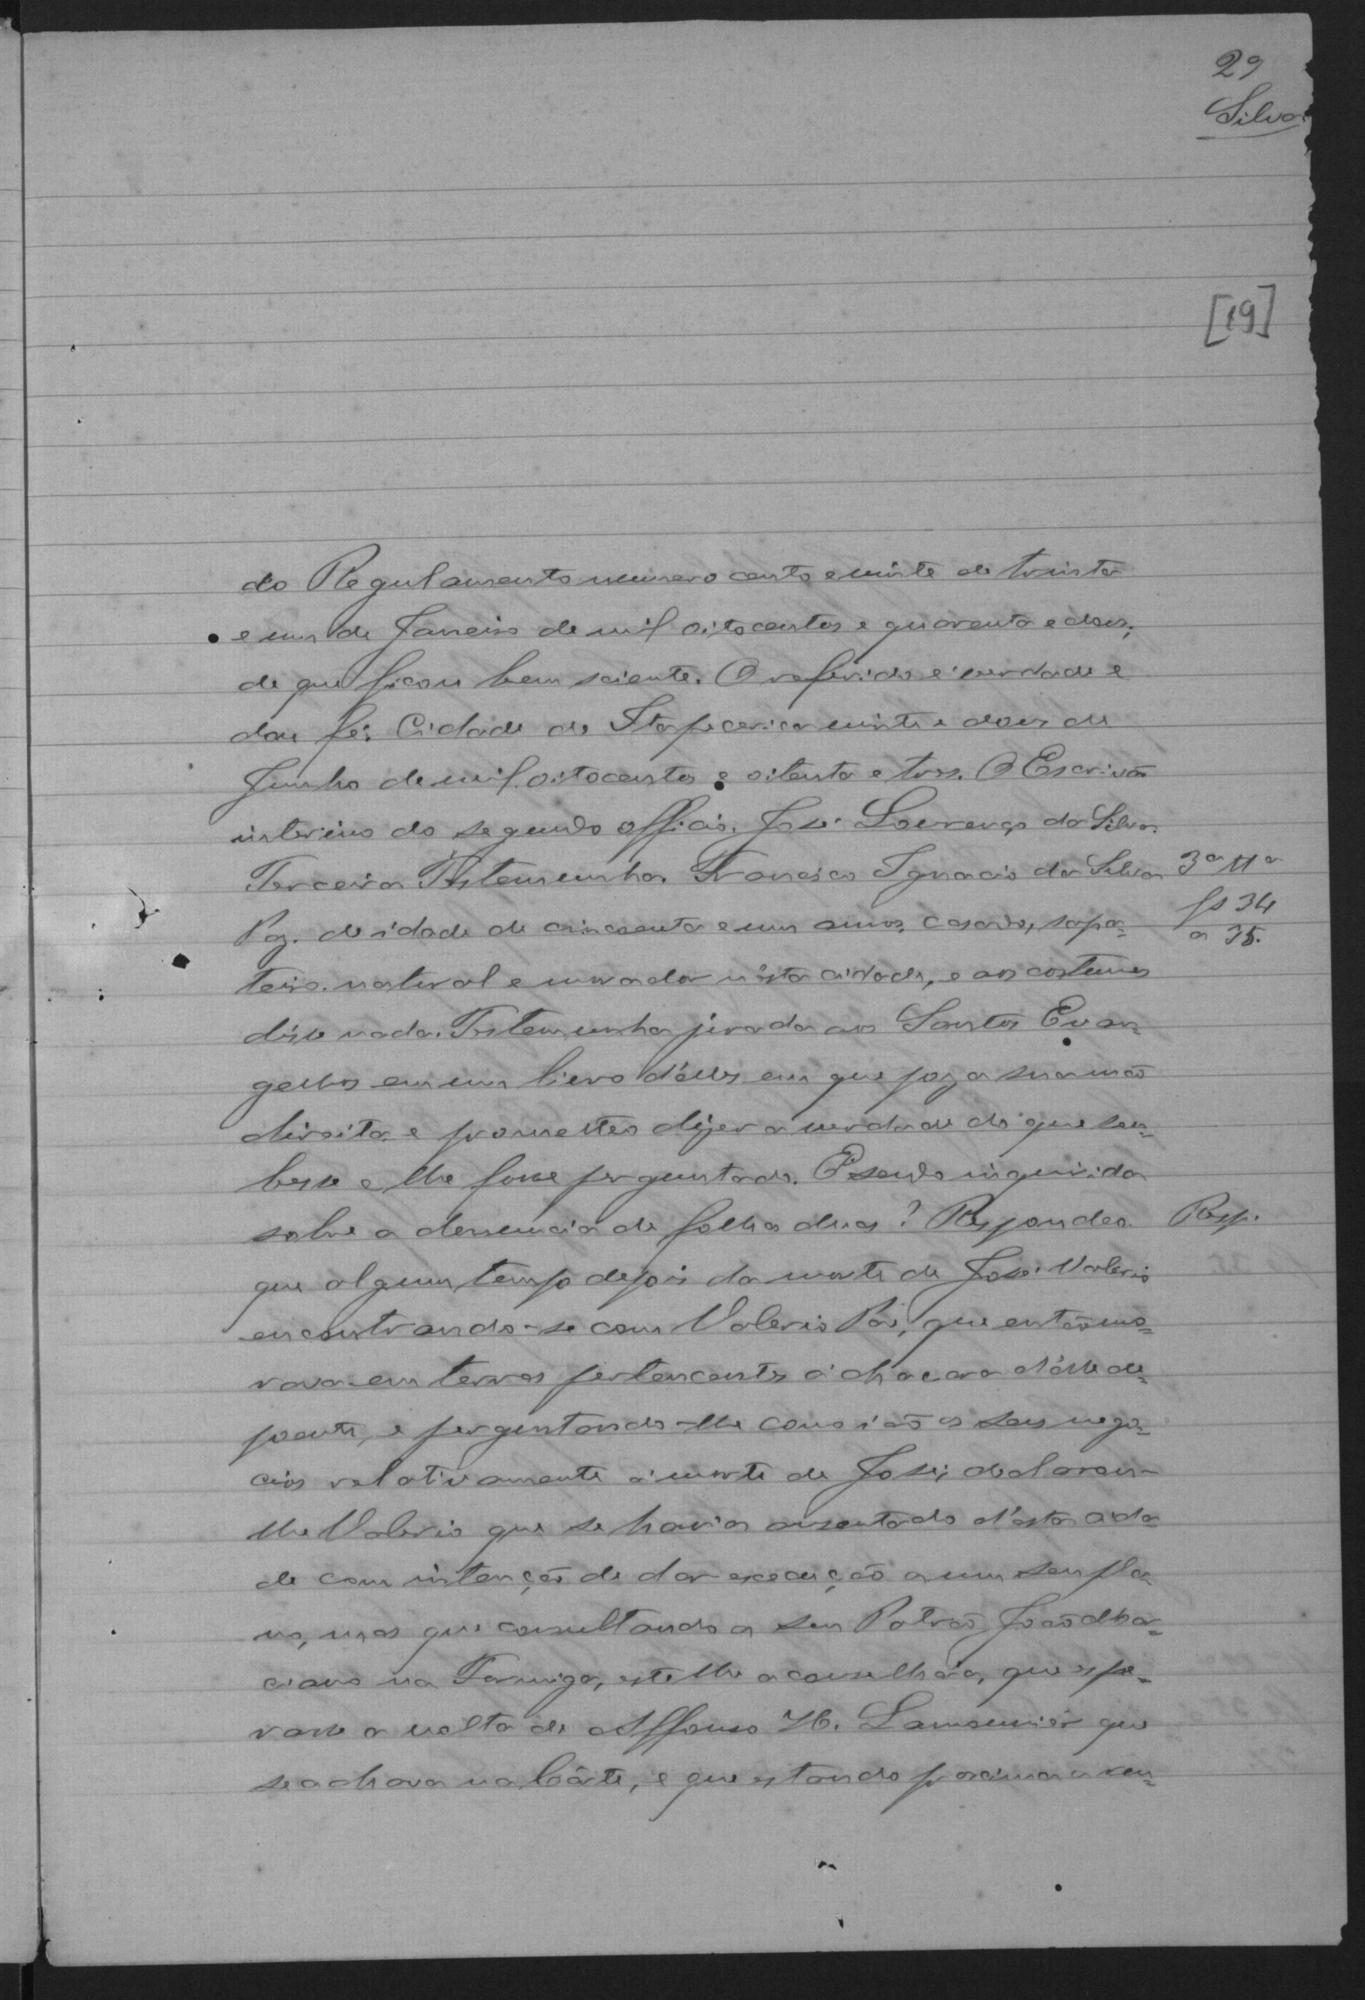 29
Silva
[19]
do Regulamento numero cento e vinte de trinta
e um de Janeiro de mil oitocentos e quarenta e dous;
de que ficou bem sciente. O referido é verdade e
dou fé. Cidade de Itapecerica vinte e dous de
Junho de mil oitocentos e oitenta e tres. O Escrivão
interino do segundo officio, José Lourenço da Silva.
Terceira Testemunha. Francisco Ignacio da Silva
3ª Ttª
fs 34
a 35.
Paz. de idade de cincoenta e um annos, casado, sapa-
teiro. natural e morador nésta cidade, e aos costumes
disse nada. Testemunha jurada aos Santos Evan-
gelhos em um livro d'elles em que poz a sua mão
direita e prometteo dizer a verdade do que sou-
besse e lhe fosse perguntado. E sendo inquirida
sobre a denuncia de folha duas? Respondeo
Resp.
que algum tempo depois da morte de José Valerio
encontrando-se com Valerio Pai, que então mo-
rava em terras pertencentes á chacara d'élle de-
poente, e perguntando-lhe como ião os seus nego-
cios relativamente á morte de José, declarou-
lhe Valerio que se havia ausentado d'ésta cida-
de com intenção de dar execução a um seu pla-
no, mas que consultando a seu Patrão João
ciano na Formiga, este lhe aconselhára, que espe-
rasse a volta de Affonso H. Lamounier que
se achava na Côrte, e que estando proxima a reu-